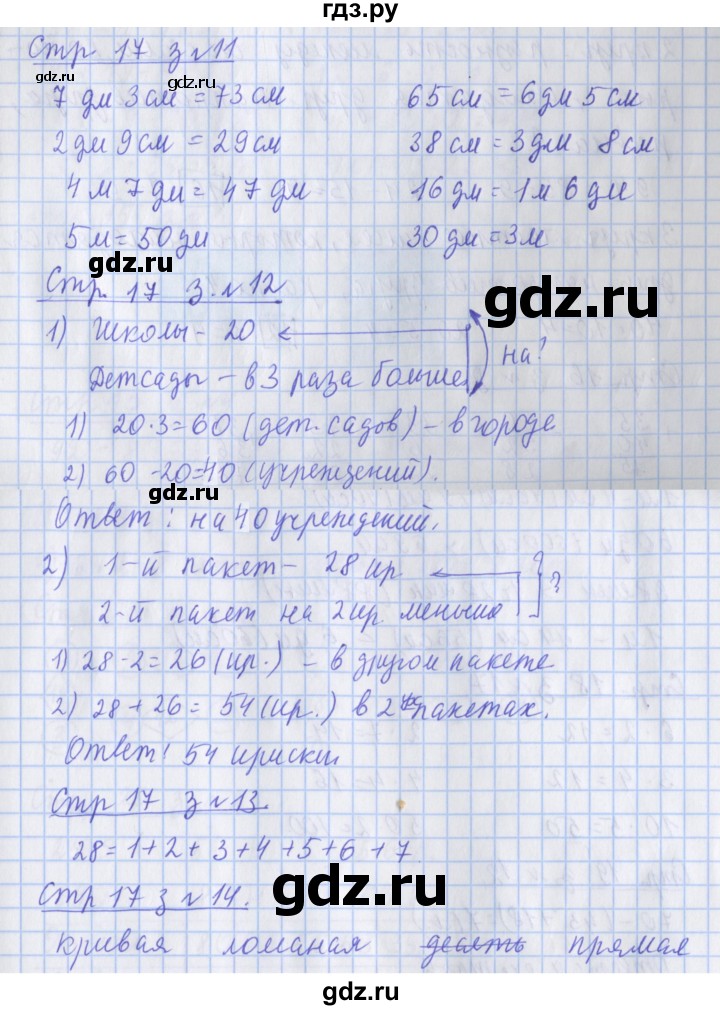 гдз.ру
Стр 17 з №11
gdz.ru
gdz.ru
7 дм 3 см = 73 см 65 см = 6 дм 5 см
2 дм 9 см = 29 см 38 см = 3 дм 8 см
4 м 7 дм = 47 дм 16 дм = 1 м 6 дм
5 м = 50 дм 30 дм = 3 м
gdz.ru
Стр. 17 з. №12
gdz.ru
1) Школы - 20
на?
Детсады - в 3 раза больше
1) 20·3=60 (дет. садов) - в городе
2) 60-20=40 (учреждений).
gdz.ru
Ответ: на 40 учреждений.
2) 1-й пакет - 28 ир ?
2-й пакет на 2 ир меньше
1) 28-2=26 (ир.) - в другом пакете
2) 28+26= 54 (ир.) в 2 пакетах.
Ответ! 54 ириски.
Стр 17 з №13.
28=1+2+3+4+5+6+7
gdz.ru
Стр 17 з №14.
кривая ломаная десять прямая
gdz.ru
gdz.ru